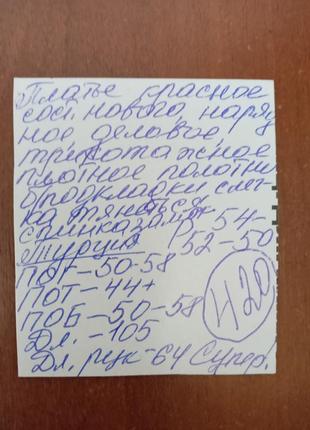 Платье красное
сост. нового, наряд
ное, деловое,
трикотажное
плотное полотно
б/подкладки слег
ка тянеться
спинка замок Р-54-
Турция 52-50
ПОГ-50-58
ПОТ-44+
ПОБ-50-58 420
Дл.-105
Дл. рук-64 Супер!